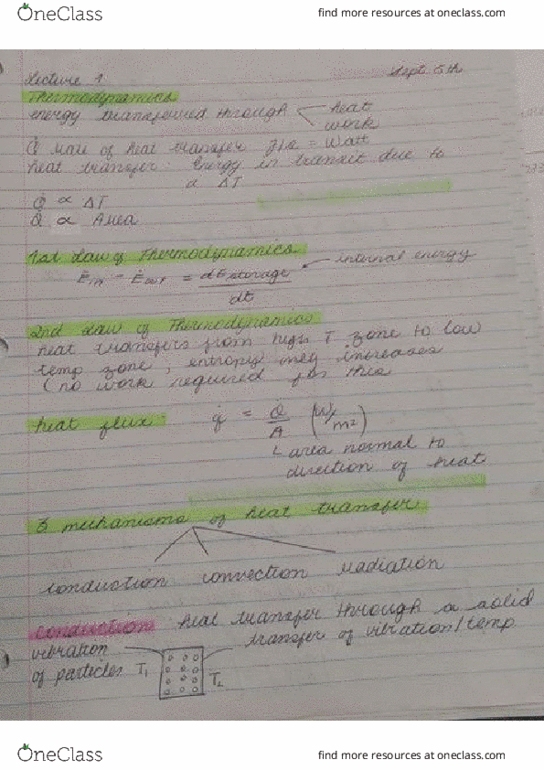 OneClass find more resources at oneclass.com
Lecture 1 Sept 5th
Thermodynamics
energy transferred through heat
work
Q̇ rate of heat transfer J/s = Watt
heat transfer: Energy in transit due to
∝ ΔT
Q̇ ∝ ΔT
Q̇ ∝ Area
1st Law of Thermodynamics
Ėin - Ėout = dEstorage internal energy
dt
2nd Law of Thermodynamics
heat transfers from high T zone to low
temp zone, entropy only increases
(no work required for this
heat flux: q̇ = Q̇ (W/m²)
A
area normal to
direction of heat
3 mechanisms of heat transfer
conduction convection radiation
conduction heat transfer through a solid
vibration transfer of vibration/temp
of particles T₁ T₂
OneClass find more resources at oneclass.com